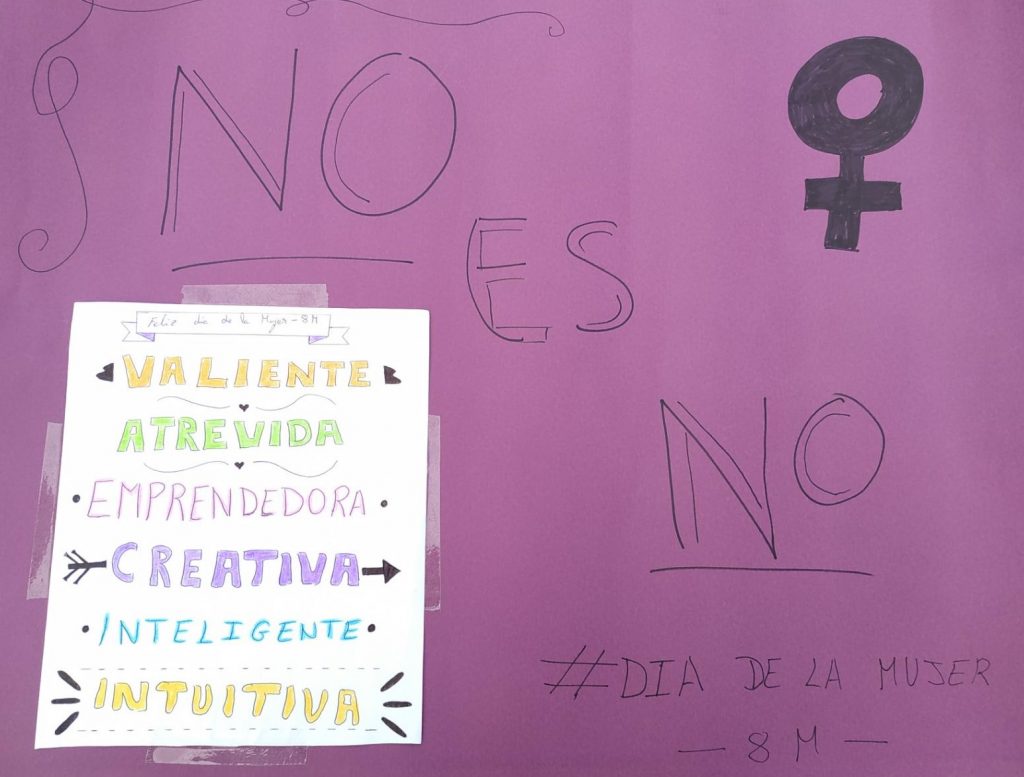 NO
ES
NO
Feliz dia de la Mujer - 8M
VALIENTE
ATREVIDA
EMPRENDEDORA
CREATIVA
INTELIGENTE
INTUITIVA
#DIA DE LA MUJER
- 8 M -